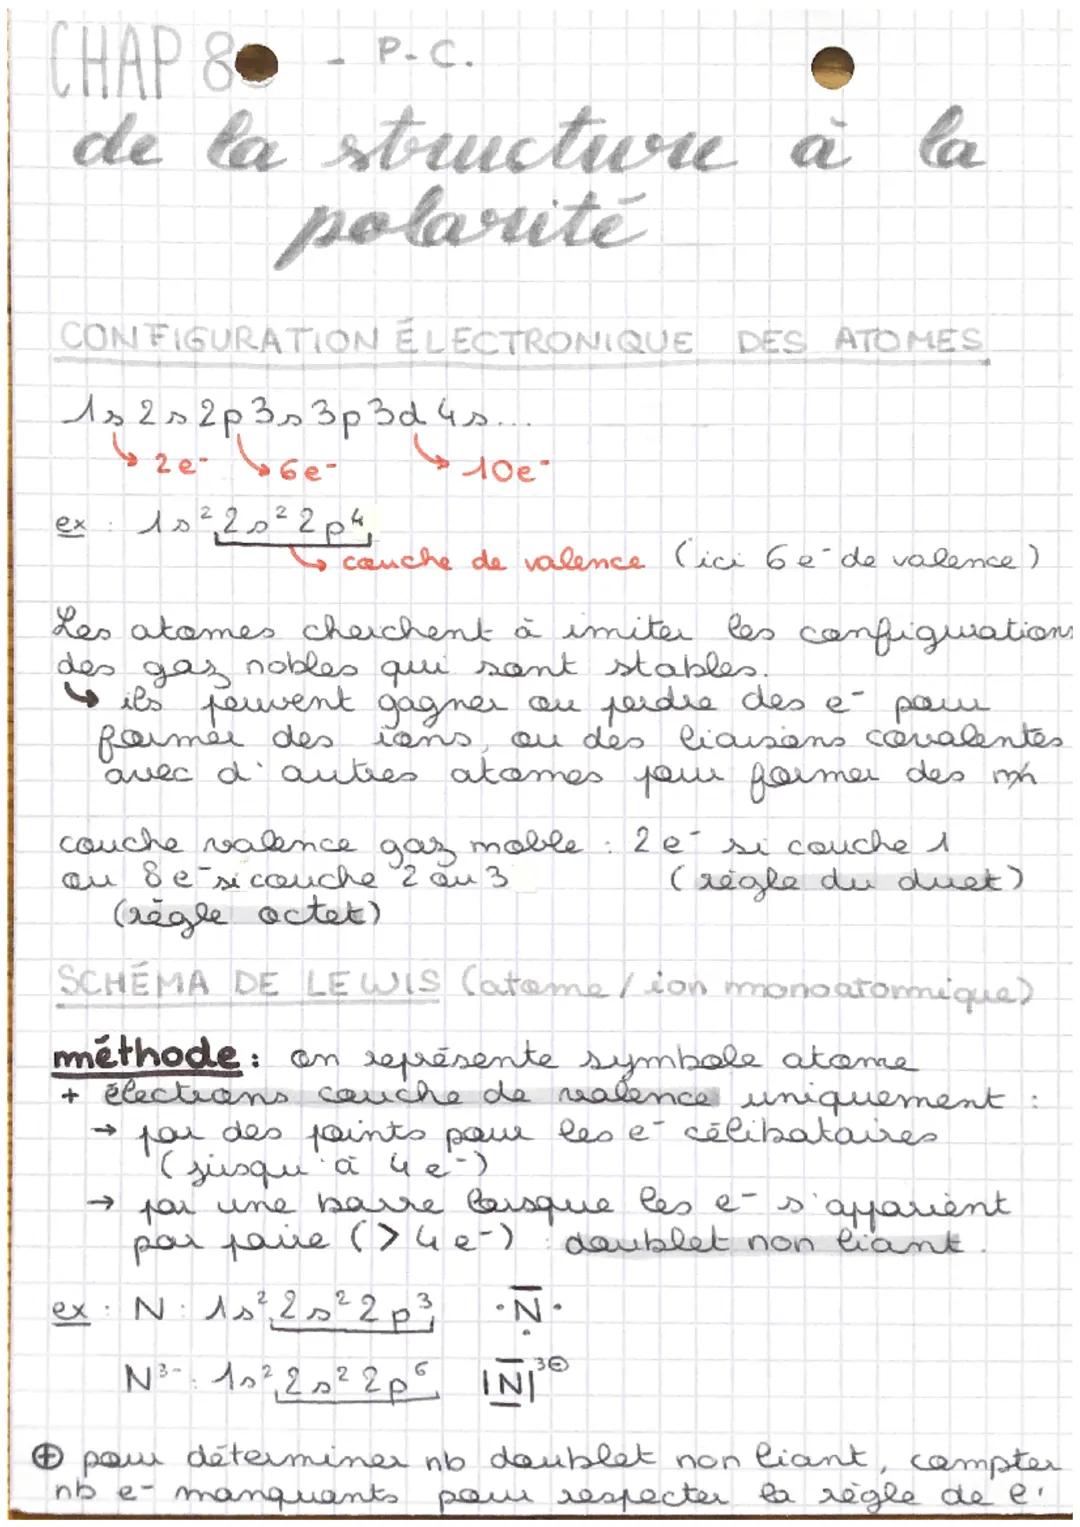 CHAP 8 - P-C.
de la structure à la
polarité
CONFIGURATION ÉLECTRONIQUE DES ATOMES
1s 2s 2p 3s 3p 3d 4s...
↳ 2e⁻ ↳ 6e⁻ ↳ 10e⁻
ex : 1s² 2s² 2p⁴
↳ couche de valence (ici 6e⁻ de valence)
Les atomes cherchent à imiter les configurations
des gaz nobles qui sont stables.
↳ ils peuvent gagner ou perdre des e⁻ pour
former des ions, ou des liaisons covalentes
avec d'autres atomes pour former des
couche valence gaz noble : 2e⁻ si couche 1
ou 8e⁻ si couche 2 ou 3 (règle du duet)
(règle octet)
SCHÉMA DE LEWIS (atome / ion monoatomique)
méthode : on représente symbole atome
+ électrons couche de valence uniquement :
→ par des points pour les e⁻ célibataires
(jusqu'à 4e⁻)
→ par une barre lorsque les e⁻ s'apparient
par paire (> 4e⁻) : doublet non liant.
ex : N : 1s² 2s² 2p³ · N ·
N³⁻ : 1s² 2s² 2p⁶ |N| 3⊖
⊕ pour déterminer nb doublet non liant, compter
nb e⁻ manquants pour respecter la règle de l'